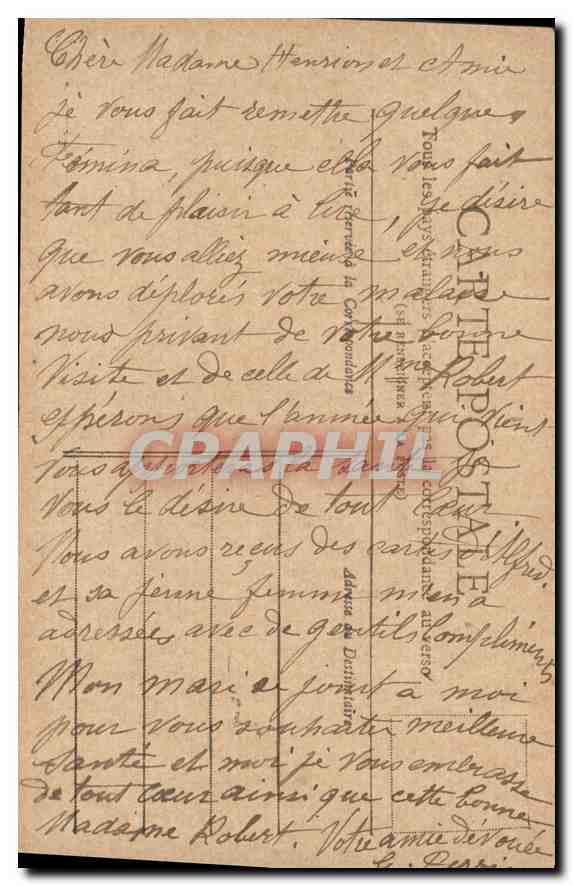 Chère Madame Henrion et Amie
je vous fait remettre quelques
Fémina, puisque cela vous fait
tant de plaisir à lire, je désire
que vous alliez mieux et nous
avons déplorés votre malaise
nous privant de votre bonne
Visite et de celle de Mme Robert
espérons que l'année qui vient
vous la santé je
vous le désire de tout cœur
Nous avons reçus des cartes d'Alfred.
et sa jeune femme m'en a
adressées avec de gentils Compliments
Mon mari se joint a moi
pour vous souhaiter meilleure
santé et moi je vous embrasse
de tout Cœur ainsi que cette bonne
Madame Robert. Votre amie dévouée
CARTE POSTALE
Tous les pays étrangers n'acceptent pas la correspondance au verso
(SE RENSEIGNER A LA POSTE)
Partie réservée à la Correspondance
Adresse du Destinataire
CRAPHIL